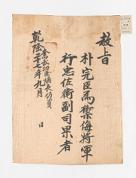 敎旨
朴臣爲禦侮將軍
行忠佐衛副司果者
乾隆十七年九月 日